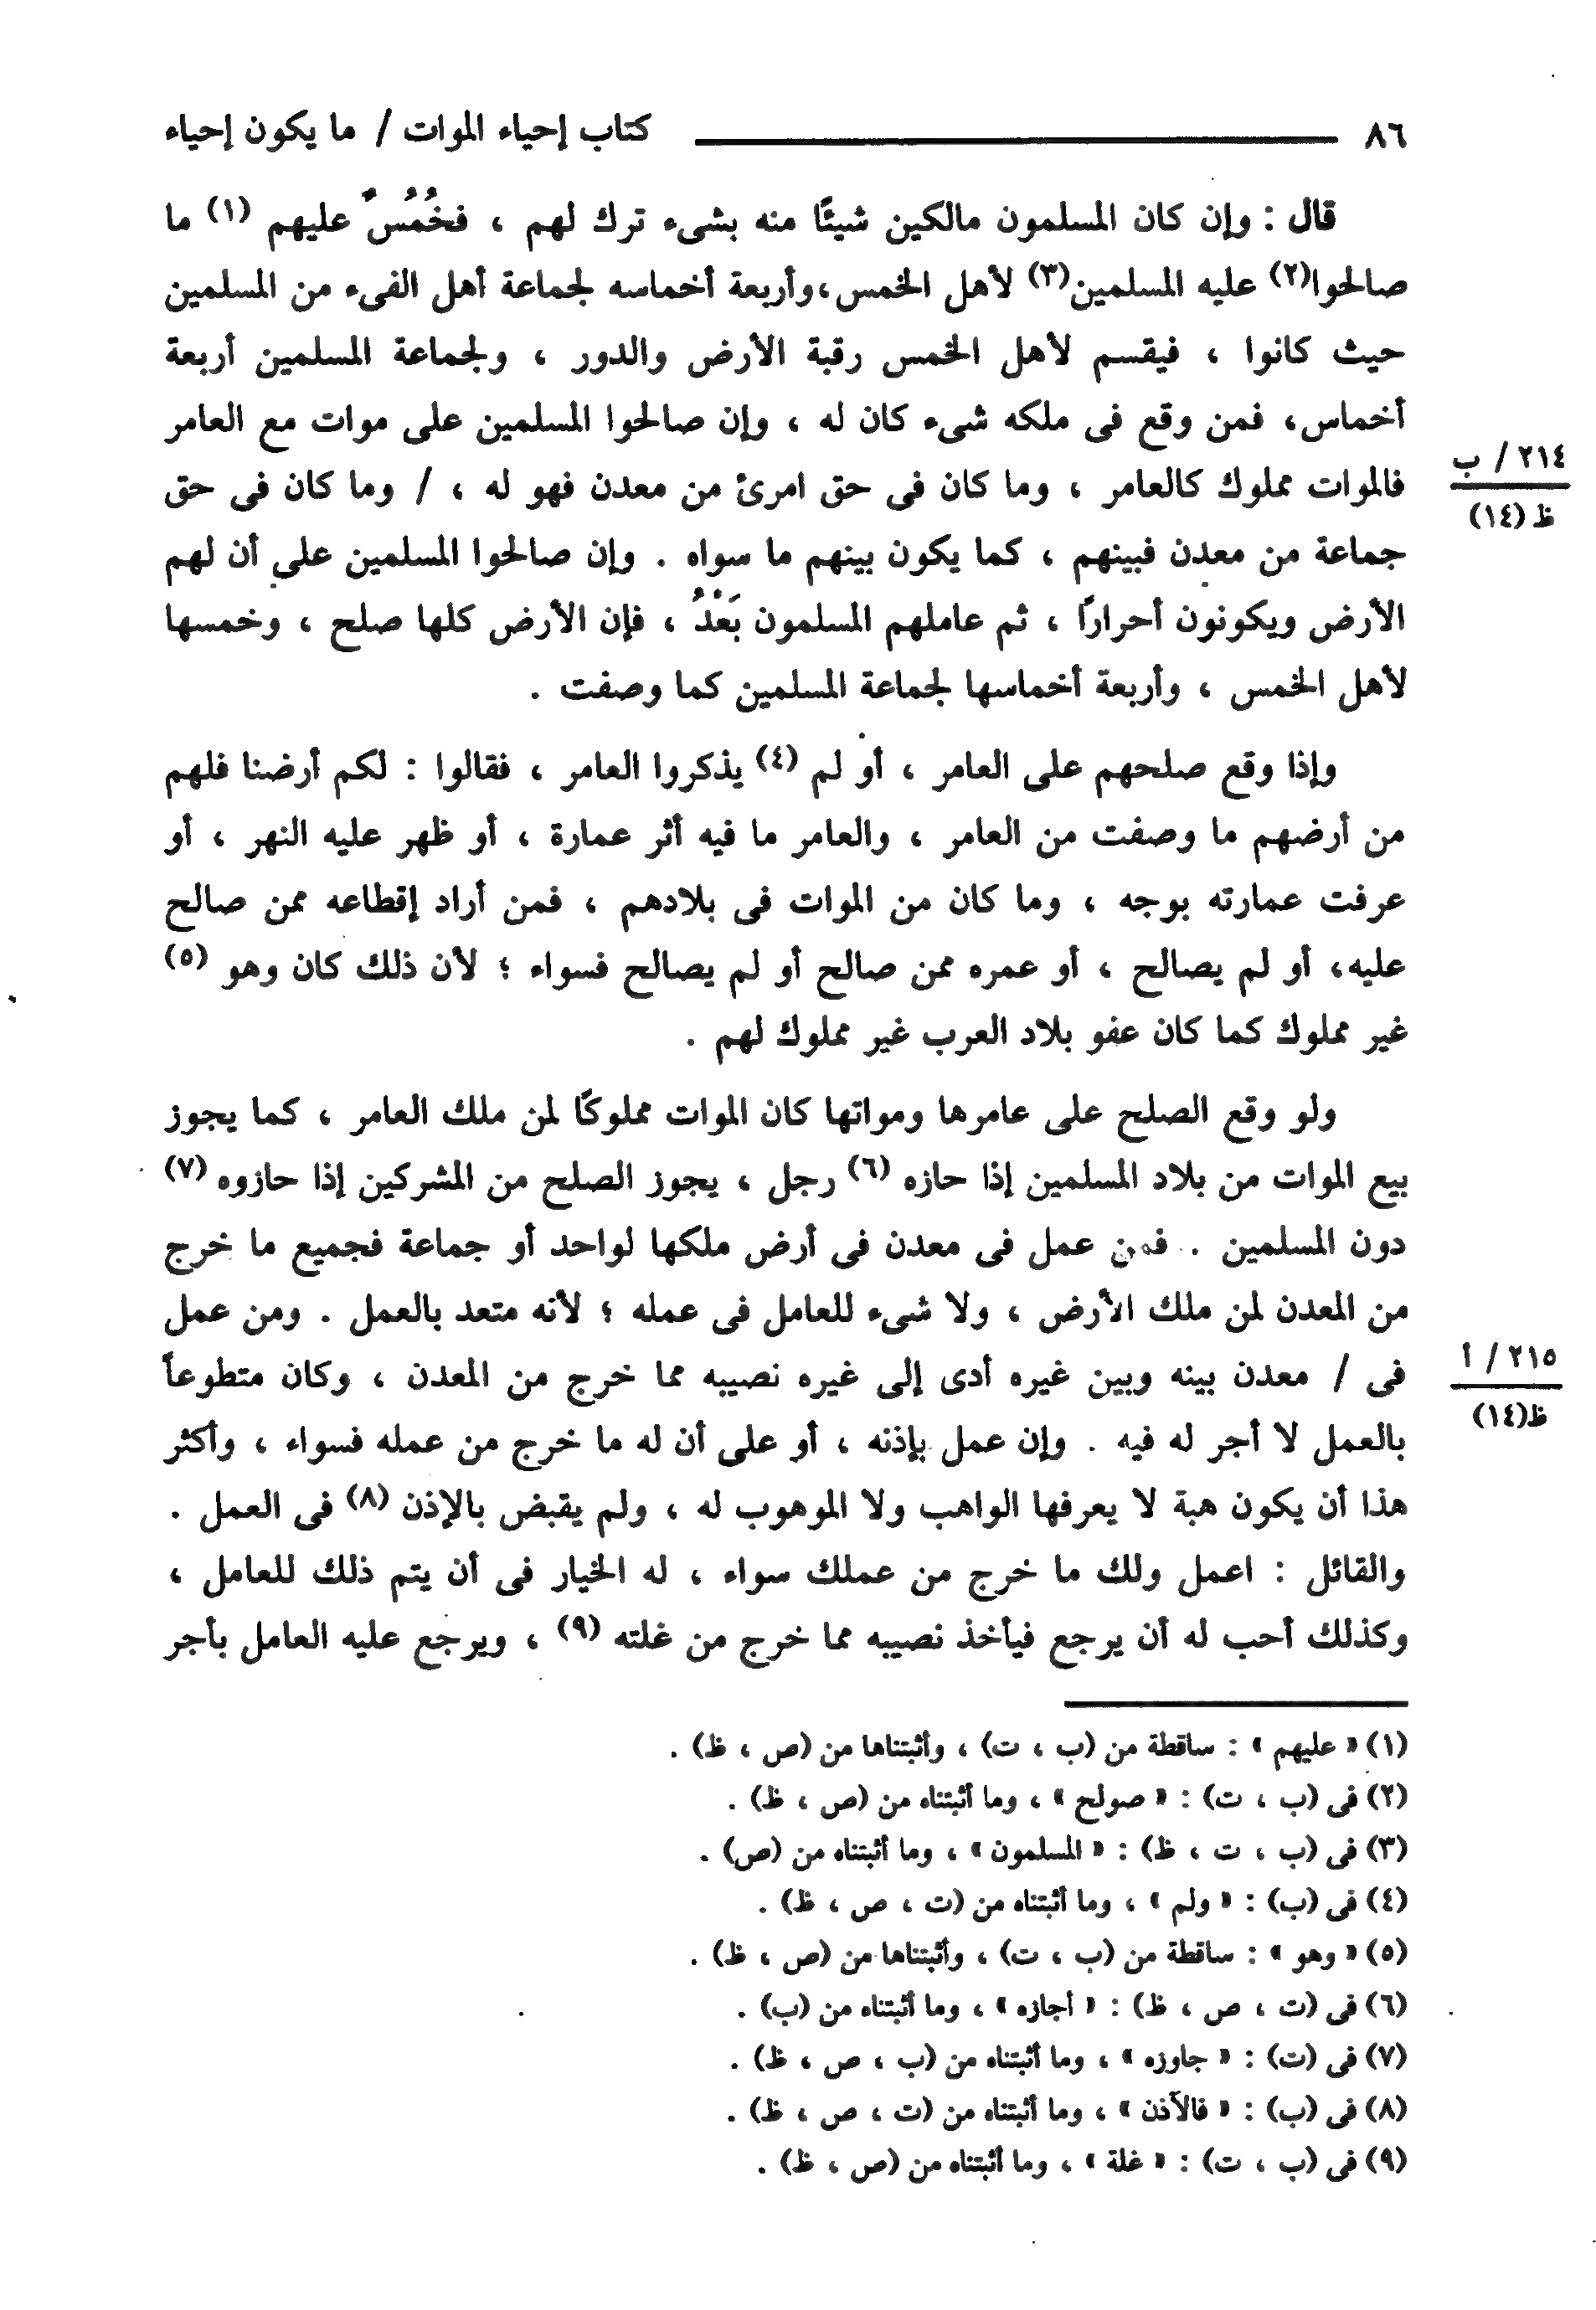 ٨٦ كتاب إحياء الموات / ما يكون إحياء
قال : وإن كان المسلمون مالكين شيئًا منه بشىء ترك لهم ، فخُمُسٌ عليهم (١) ما
صالحوا(٢) عليه المسلمين(٣) لأهل الخمس،وأربعة أخماسه لجماعة أهل الفىء من المسلمين
حيث كانوا ، فيقسم لأهل الخمس رقبة الأرض والدور ، ولجماعة المسلمين أربعة
أخماس، فمن وقع فى ملكه شىء كان له ، وإن صالحوا المسلمين على موات مع العامر
٢١٤ / ب
فالموات مملوك كالعامر ، وما كان فى حق امرئ من معدن فهو له ، / وما كان فى حق
ظ (١٤)
جماعة من معدن فبينهم ، كما يكون بينهم ما سواه . وإن صالحوا المسلمين على أن لهم
الأرض ويكونون أحرارًا ، ثم عاملهم المسلمون بَعْدُ ، فإن الأرض كلها صلح ، وخمسها
لأهل الخمس ، وأربعة أخماسها لجماعة المسلمين كما وصفت .
وإذا وقع صلحهم على العامر ، أو لم (٤) يذكروا العامر ، فقالوا : لكم أرضنا فلهم
من أرضهم ما وصفت من العامر ، والعامر ما فيه أثر عمارة ، أو ظهر عليه النهر ، أو
عرفت عمارته بوجه ، وما كان من الموات فى بلادهم ، فمن أراد إقطاعه ممن صالح
عليه، أو لم يصالح ، أو عمره ممن صالح أو لم يصالح فسواء ؛ لأن ذلك كان وهو (٥)
غير مملوك كما كان عفو بلاد العرب غير مملوك لهم .
ولو وقع الصلح على عامرها ومواتها كان الموات مملوكًا لمن ملك العامر ، كما يجوز
بيع الموات من بلاد المسلمين إذا حازه (٦) رجل ، يجوز الصلح من المشركين إذا حازوه (٧)
دون المسلمين . فمن عمل فى معدن فى أرض ملكها لواحد أو جماعة فجميع ما خرج
من المعدن لمن ملك الأرض ، ولا شىء للعامل فى عمله ؛ لأنه متعد بالعمل . ومن عمل
٢١٥ / أ
فى / معدن بينه وبين غيره أدى إلى غيره نصيبه مما خرج من المعدن ، وكان متطوعاً
ظ(١٤)
بالعمل لا أجر له فيه . وإن عمل بإذنه ، أو على أن له ما خرج من عمله فسواء ، وأكثر
هذا أن يكون هبة لا يعرفها الواهب ولا الموهوب له ، ولم يقبض بالإذن (٨) فى العمل .
والقائل : اعمل ولك ما خرج من عملك سواء ، له الخيار فى أن يتم ذلك للعامل ،
وكذلك أحب له أن يرجع فيأخذ نصيبه مما خرج من غلته (٩) ، ويرجع عليه العامل بأجر
(١) « عليهم » : ساقطة من (ب ، ت) ، وأثبتناها من (ص ، ظ) .
(٢) فى (ب ، ت) : « صولح » ، وما أثبتناه من (ص ، ظ) .
(٣) فى (ب ، ت ، ظ) : « المسلمون » ، وما أثبتناه من (ص) .
(٤) فى (ب) : « ولم » ، وما أثبتناه من (ت ، ص ، ظ) .
(٥) « وهو » : ساقطة من (ب ، ت) ، وأثبتناها من (ص ، ظ) .
(٦) فى (ت ، ص ، ظ) : « أجازه » ، وما أثبتناه من (ب) .
(٧) فى (ت) : « جاوزه » ، وما أثبتناه من (ب ، ص ، ظ) .
(٨) فى (ب) : « فالآذن » ، وما أثبتناه من (ت ، ص ، ظ) .
(٩) فى (ب ، ت) : « غلة » ، وما أثبتناه من (ص ، ظ) .